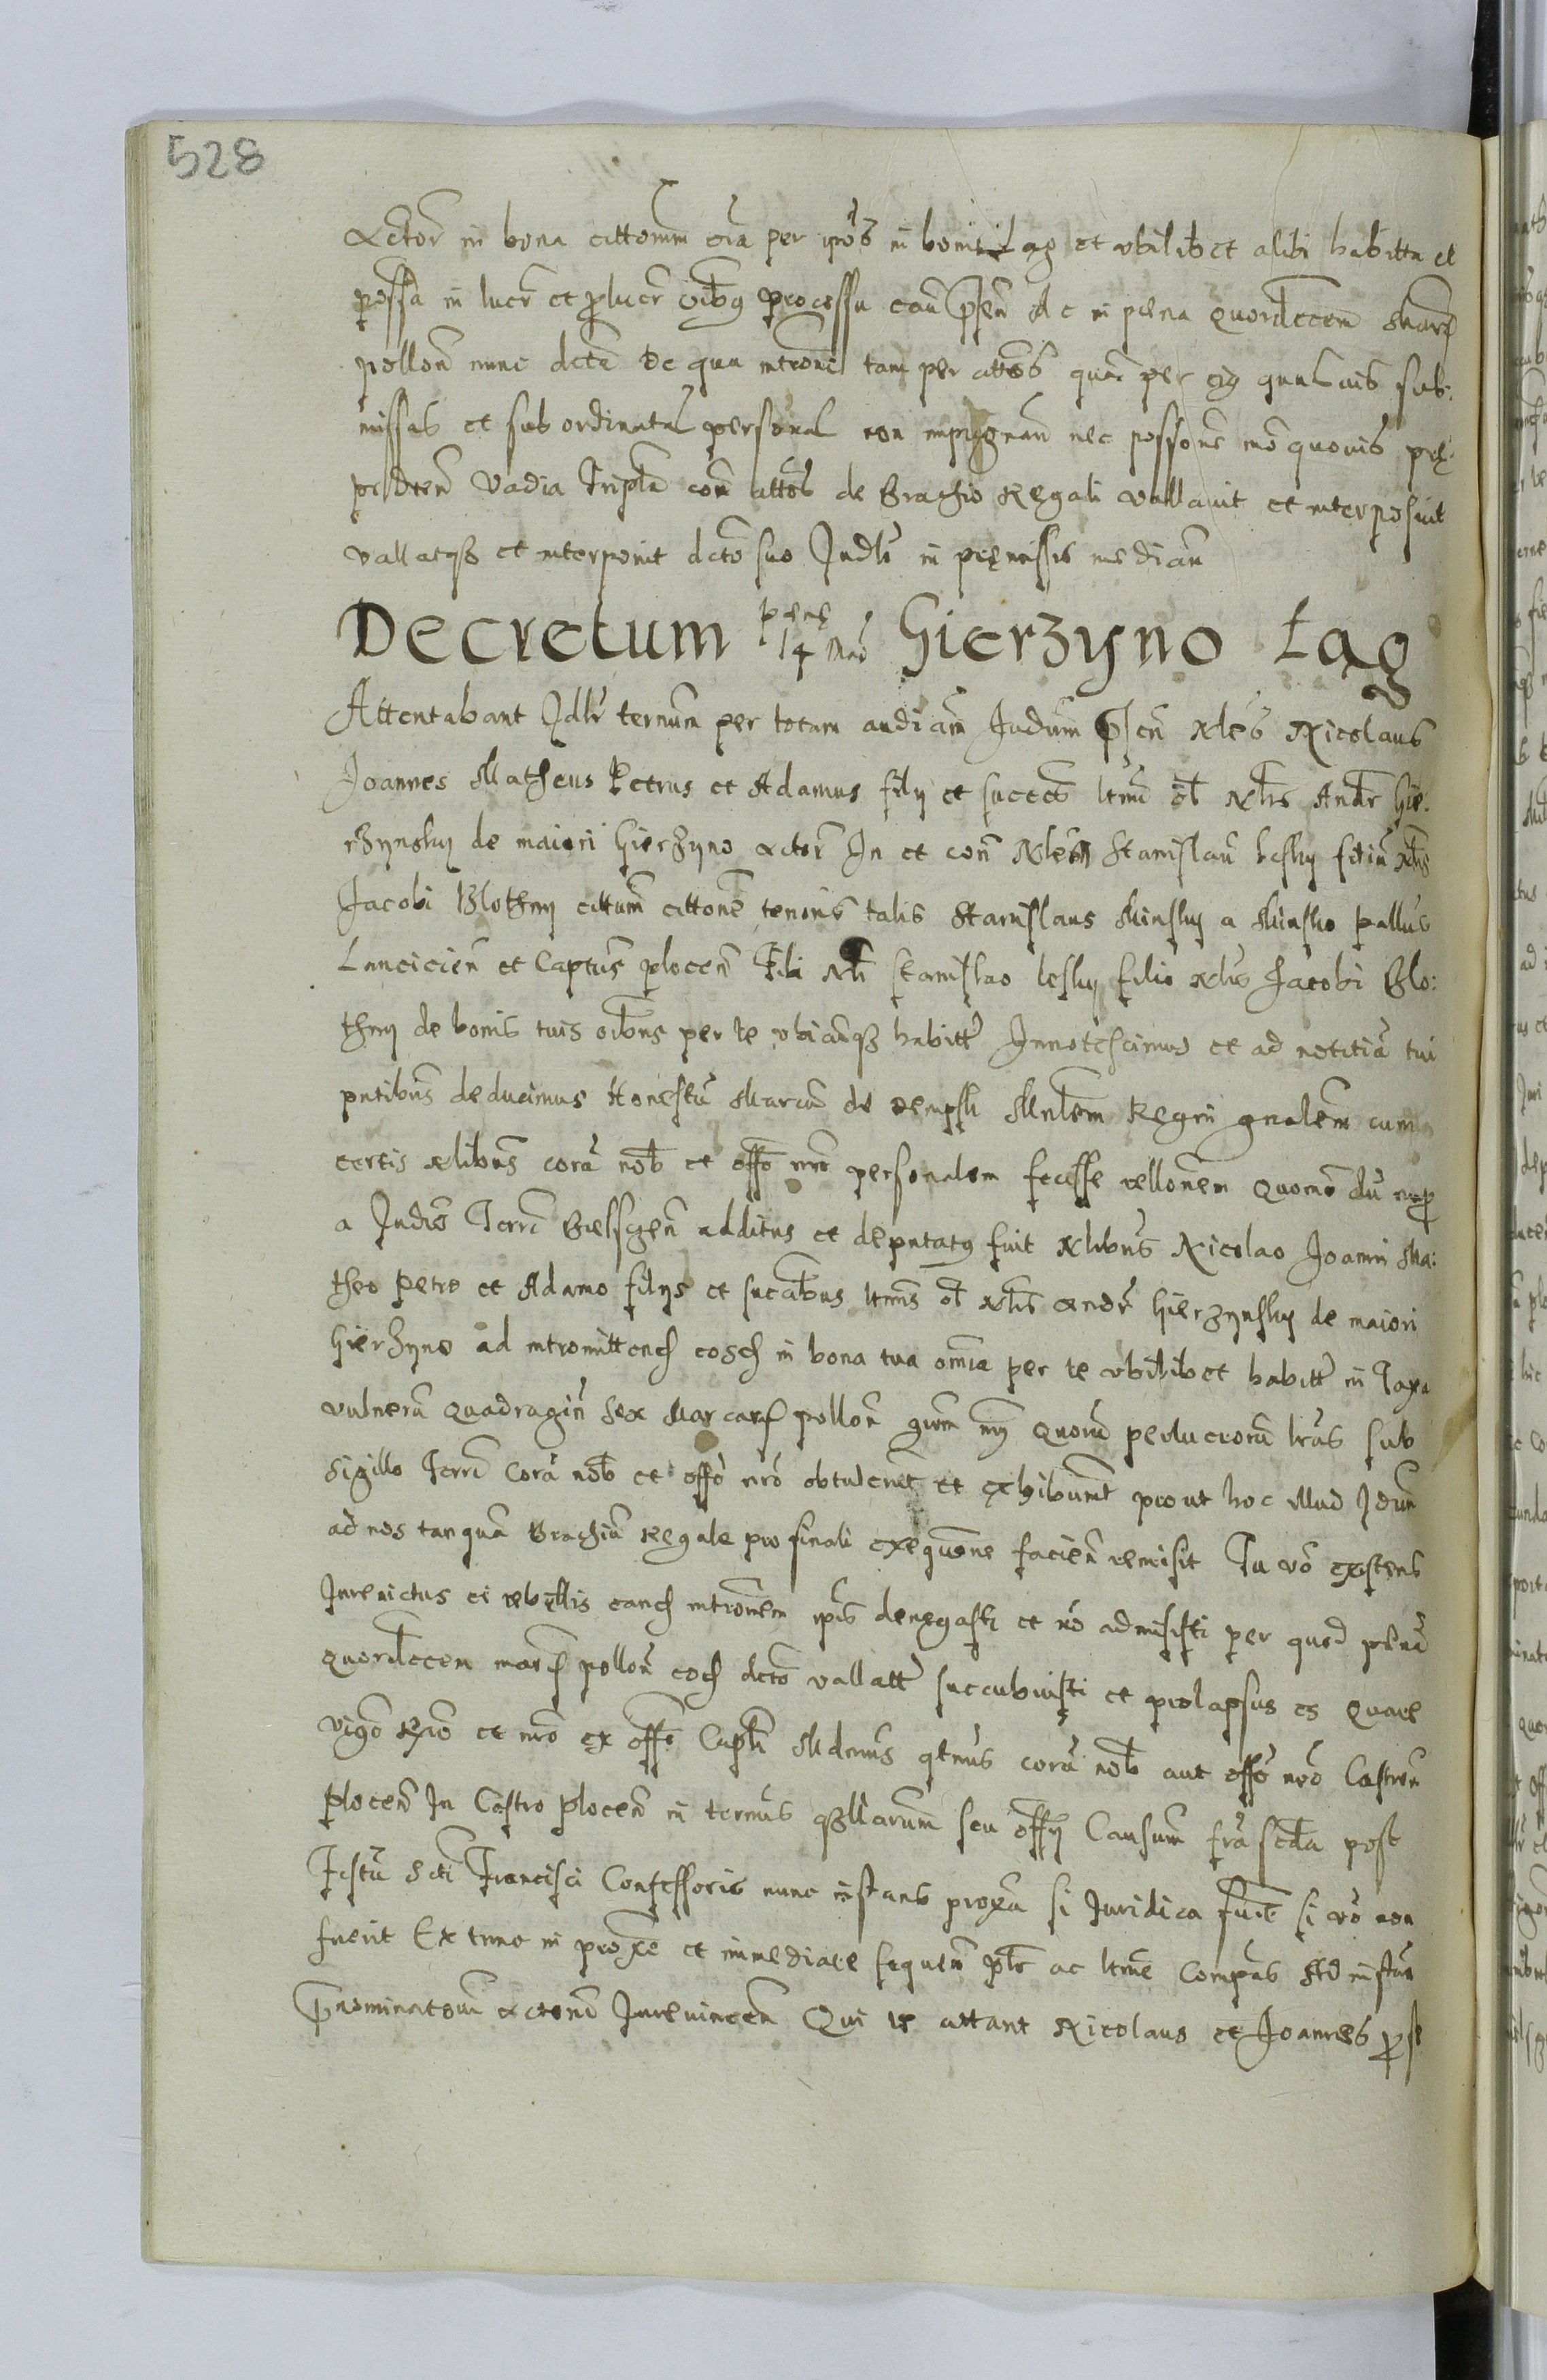 528
Actor in bona cittorum oia per ipos in bonis Lag et vbilibet alibi habitta et
possa in lucr et plucr oibus processu cau psen Ac in pena quordecem Marc
pollon nunc dcta De qua introne tam per cittos quam per eius quasvis sub:
missas et subordinatas personas non impugnan nec possone mo quovis prę:
pedien Vadia Tripla con cittos de Brachio Regali vallavit et interposuit
vallatqz et interponit dcto suo Iudli in pręmissis median
Decretum penę 14 Mar Gierzyno Lag
Attentabant Idlr ternum per totam audiam Iudum psen Nles Nicolaus
Joannes Matheus Petrus et Adamus filij et succes ltmi ol Nlis Andr Gie:
rzynsky de maiori Gierzyno Actor In et con Nlem Stanislau Lesky filiu Nlis
Jacobi Blothny cittum cittone tenoris talis Stanislaus Minsky a Minsko Pallus
Lancicien et Captus plocen Tibi Nli Stanislao Lesky filio Nlis Jacobi Blo:
thny de bonis tuis oibus per te vbicunqz habitt Innotescimus et ad notitia tui
pntibus deducimus Honestu Marcu de Mnlem Regni gnalem cum
certis Nlibus cora nob et offo nro personalem fecisse rellonem Quomo du
a Iudio Terri Bielscen additus et deputatus fuit Nlibus Nicolao Joanni Ma:
theo Petro et Adamo filijs et succibus ltmis ol Nlis Andr Gierzynsky de maiori
Gierzyno ad intromittend eosd in bona tua omia per te vbilibet habitt in Taxa
vulneru quadragin sex Marcarum pollon quoru perlucroru lras sub
sigillo Terri cora nob et offo nro obtulerut et exhibuerut prout hoc illud Idum
ad nos tanquam Brachiu Regale pro finali exequone facien remisit Tu vo existens
Iurevictus et rebellis eand intronem ipis denegasti et no admisisti per quod pena
quordecem marcarum pollon eod dcto vallatt succubuisti et prolapsus es Quare
vigo Rgio et nro ex offo Capli Mdamus qtenus cora nob aut offo nro Castren
plocen In Castro plocen in termis qrllarum seu offij Causum fra scda post
Festu scti Francisci Confessoris nunc instans proxa si Iuridica fuit si vo non
fuerit Extunc in proxe et immediate sequen plr ac ltime compas Ad instan
pnominatoru actoru Iurevincen Qui te cittant Nicolaus et Joannes p se